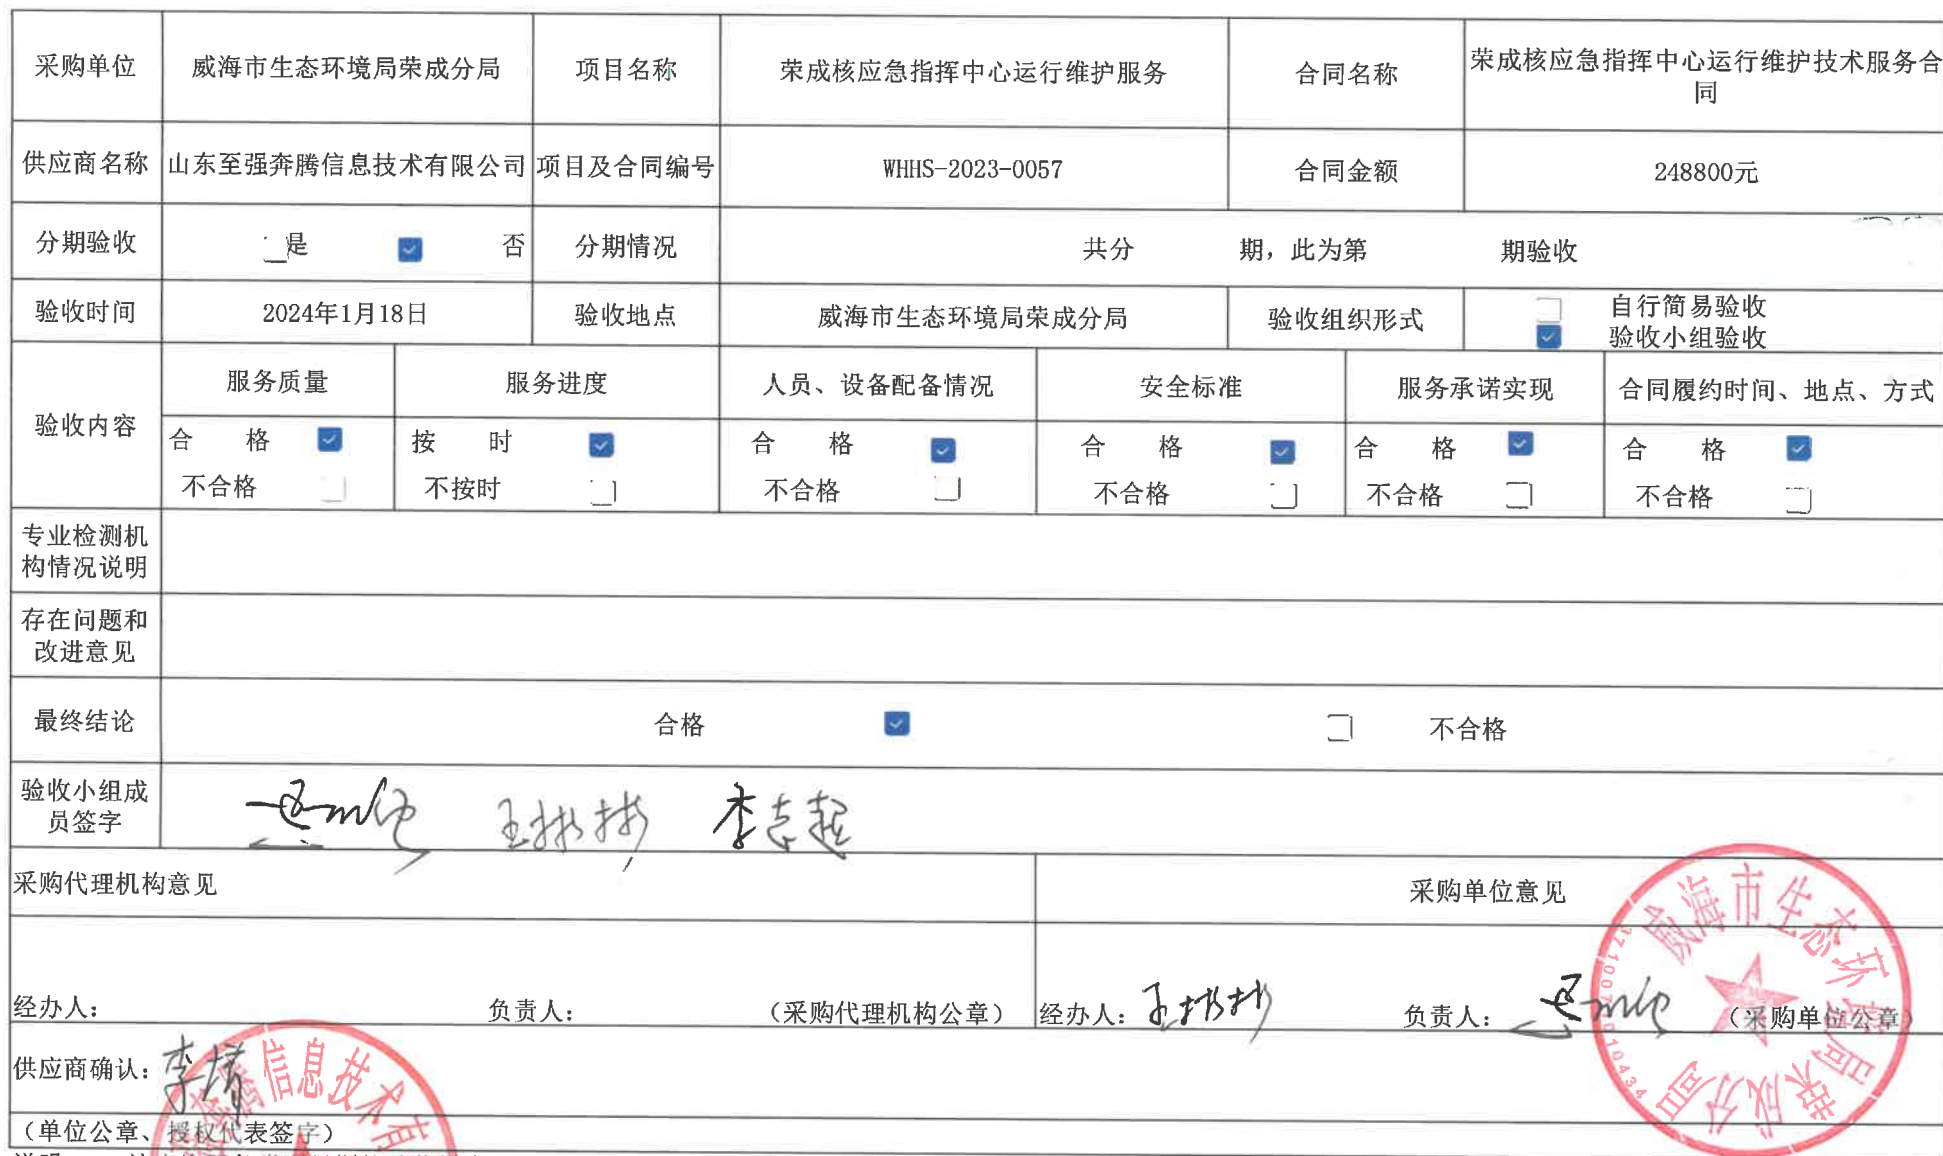 采购单位 威海市生态环境局荣成分局 项目名称 荣成核应急指挥中心运行维护服务 合同名称 荣成核应急指挥中心运行维护技术服务合
同
供应商名称 山东至强奔腾信息技术有限公司 项目及合同编号 WHHS-2023-0057 合同金额 248800元
分期验收 是 否 分期情况 共分 期，此为第 期验收
验收时间 2024年1月18日 验收地点 威海市生态环境局荣成分局 验收组织形式 自行简易验收
验收小组验收
验收内容 服务质量 服务进度 人员、设备配备情况 安全标准 服务承诺实现 合同履约时间、地点、方式
合 格 按 时 合 格 合 格 合 格 合 格
不合格 不按时 不合格 不合格 不合格 不合格
专业检测机
构情况说明
存在问题和
改进意见
最终结论 合格 不合格
验收小组成
员签字 李志超
采购代理机构意见 采购单位意见
经办人： 负责人： （采购代理机构公章） 经办人： 负责人： （采购单位公章）
供应商确认：
（单位公章、授权代表签字）
威海市生态环境局荣成分局
信息技术有